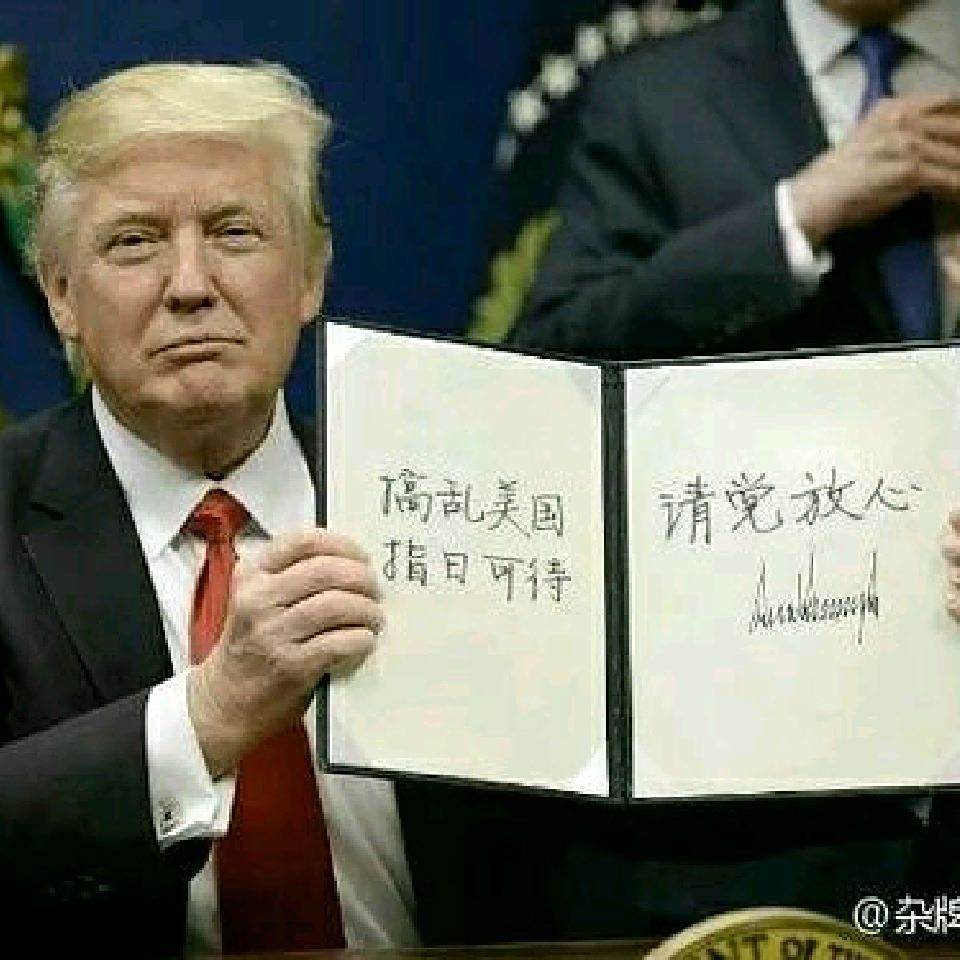 搞乱美国
指日可待
请党放心
@杂牌
NT OF TH